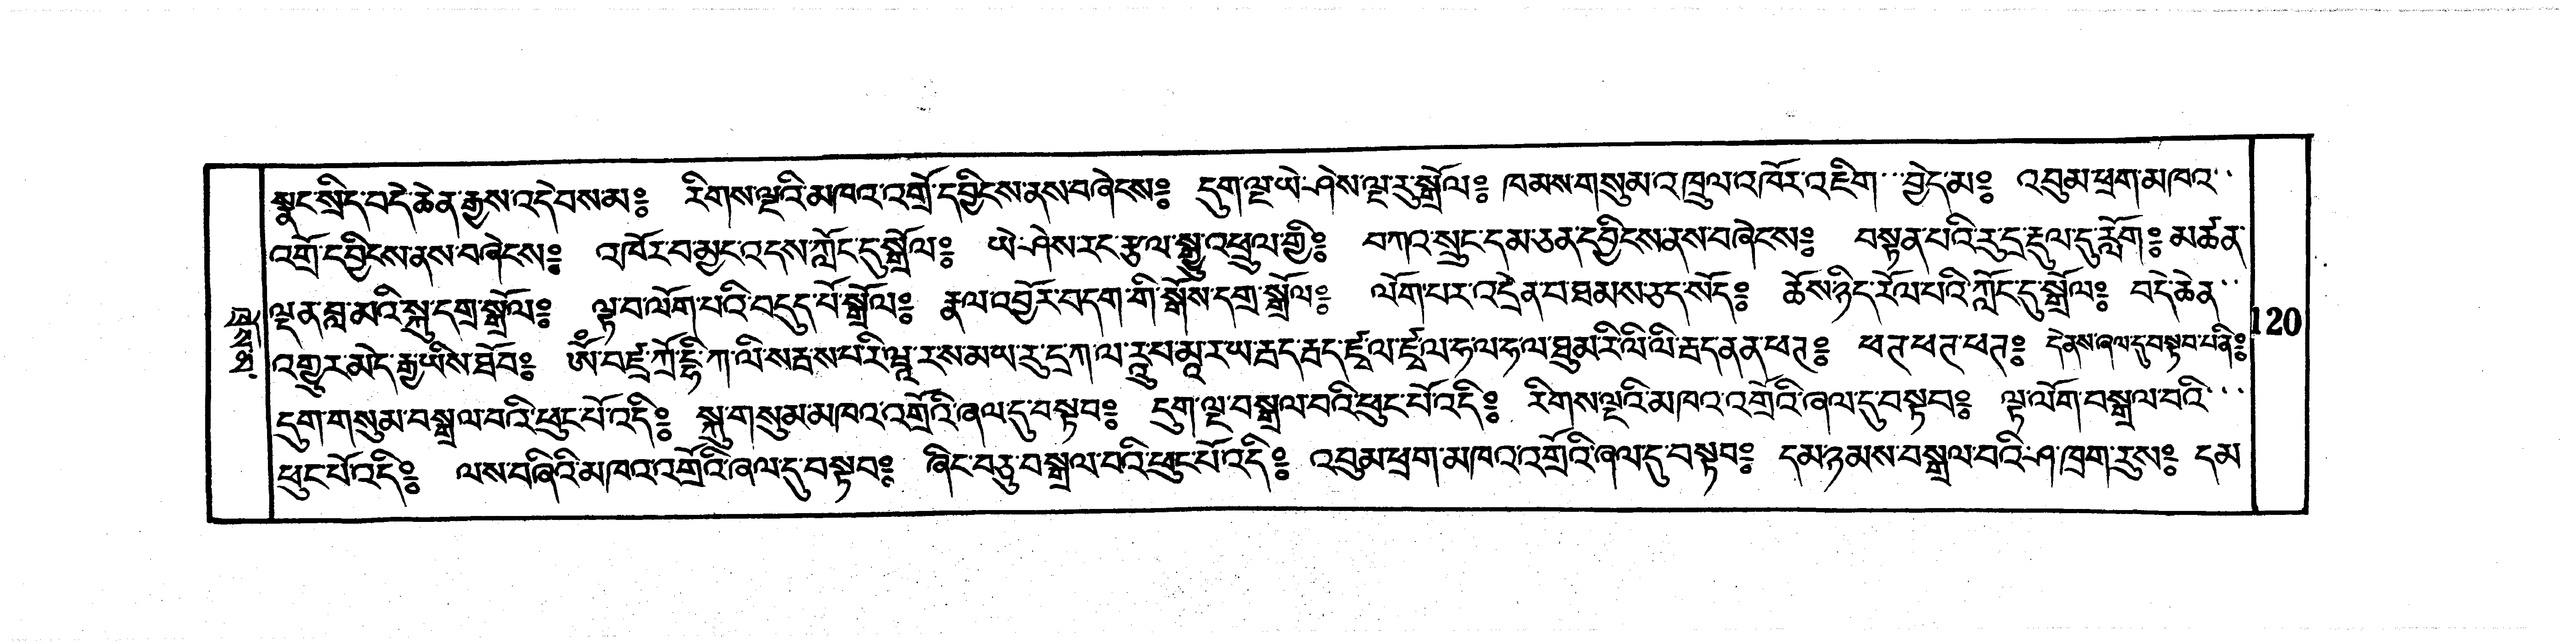 སྣང་སྲིད་བདེ་ཆེན་རྒྱས་འདེབས་མ༔ རིགས་ལྔའི་མཁའ་འགྲོ་དབྱིངས་ནས་བཞེངས༔ དུག་ལྔ་ཡེ་ཤེས་ལྔ་རུ་སྒྲོལ༔ ཁམས་གསུམ་འཁྲུལ་འཁོར་འཇིག་་བྱེད་མ༔ འབུམ་ཕྲག་མཁའ་་
འགྲོ་དབྱིངས་ནས་བཞེངས༔ འཁོར་བ་མྱང་འདས་ཀློང་དུ་སྒྲོལ༔ ཡེ་ཤེས་རང་རྩལ་སྒྱུ་འཕྲུལ་གྱི༔ བཀའ་སྲུང་དམ་ཅན་དབྱིངས་ནས་བཞེངས༔ བསྟན་པའི་རུ་དྲ་རྡུལ་དུ་རློག༔ མཚན་
ལྡན་བླ་མའི་སྐུ་དགྲ་སྒྲོལ༔ ལྟ་བ་ལོག་པའི་བདུད་པོ་སྒྲོལ༔ རྣལ་འབྱོར་བདག་གི་སྒོས་དགྲ་སྒྲོལ༔ ལོག་པར་འདྲེན་བ་ཐམས་ཅད་སོད༔ ཆོས་ཉིད་རོལ་པའི་ཀློང་དུ་སྒྲོལ༔ བདེ་ཆེན་་
འགྱུར་མེད་རྒྱ་ཡིས་ཐེབ༔ ཨོཾ་བཛྲ་ཀྲོ་དྷི་ཀ་ལི་ས་རྦ་ས་པ་རི་ཝཱ་ར་ས་མ་ཡ་རུ་དྲ་ཀ་ལ་རཱུ་པ་མཱ་ར་ཡ་རྦད་རྦད་ཛྭལ་ཛྭལ་ཧལ་ཧལ་ཐུམ་རི་ལི་ལི་རྦད་ནན་ཕཊ༔ ཕཊ་ཕཊ་ཕཊ༔ དེ་ནས་ཞལ་དུ་བསྟབ་པ་ནི༔
དུག་གསུམ་བསྒྲལ་བའི་ཕུང་པོ་འདི༔ སྐུ་གསུམ་མཁའ་འགྲོའི་ཞལ་དུ་བསྟབ༔ དུག་ལྔ་བསྒྲལ་བའི་ཕུང་པོ་འདི༔ རིགས་ལྔའི་མཁའ་འགྲོའི་ཞལ་དུ་བསྟབ༔ ལྟ་ལོག་བསྒྲལ་བའི་་་
ཕུང་པོ་འདི༔ ལས་བཞིའི་མཁའ་འགྲོའི་ཞལ་དུ་བསྟབ༔ ཞིང་བཅུ་བསྒྲལ་བའི་ཕུང་པོ་འདི༔ འབུམ་ཕྲག་མཁའ་འགྲོའི་ཞལ་དུ་བསྟབ༔ དམ་ཉམས་བསྒྲལ་བའི་ཤ་ཁྲག་རུས༔ དམ
120